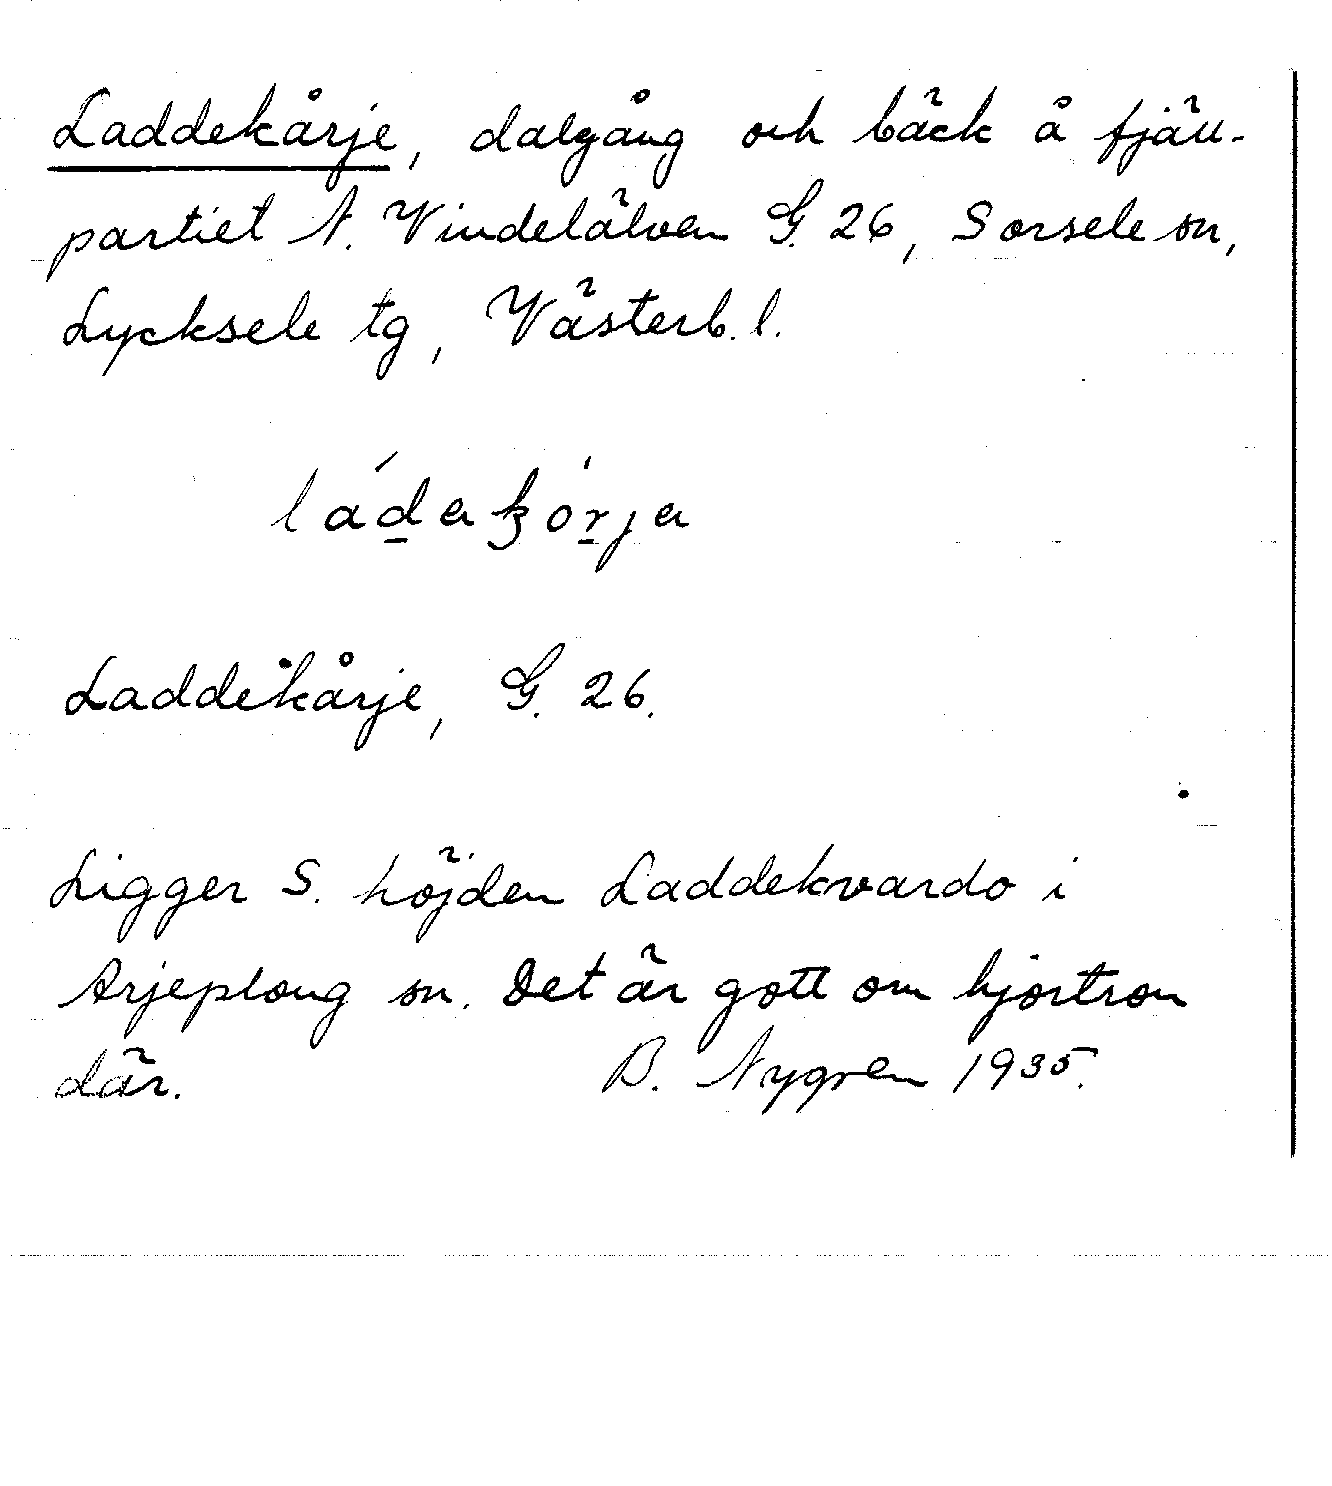 Laddekårje, dalgång och bäck å fjäll-
partiet N. Vindelälven G. 26, Sorsele sn,
Lycksele tg, Västerb. l.
Laddekårje, G. 26.
Ligger S. höjden Laddekvardo i
Arjeploug sn. Det är gott om hjortron
där. B. Nygren 1935.